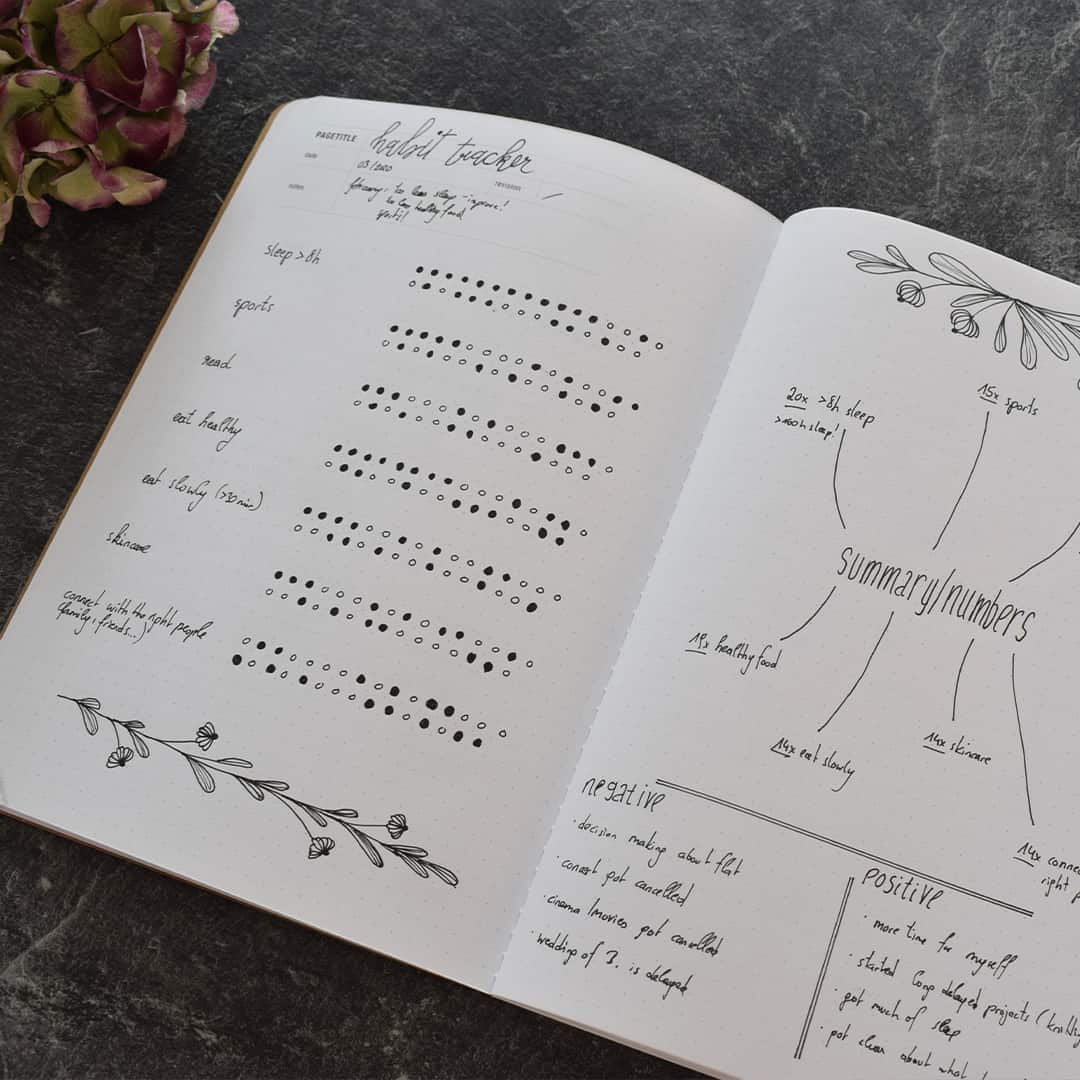 PAGETITLE habit tracker
date 03/2020 revision
notes february: to less sleep - improve!
to less healthy food
sports!
sleep > 8h
sports
read
eat healthy
eat slowly (>30 min)
skincare
connect with the right people
(family, friends...)
20x >8h sleep
>160h sleep!
15x sports
summary/numbers
19x healthy food
14x eat slowly
14x skincare
14x conne
right p
negative
· decision making about flat
· got cancelled
· cinema/movies got cancelled
· wedding of is delayed
positive
· more time for myself
· started long delayed projects (
· got much of sleep
· got clear about what